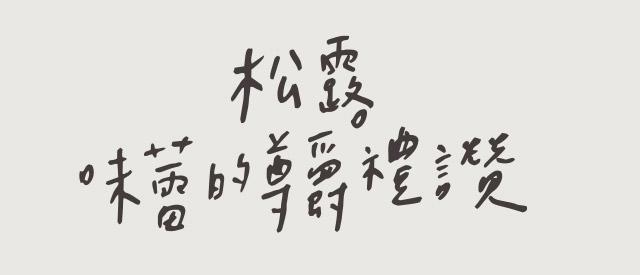 松露
味蕾的尊爵禮讚